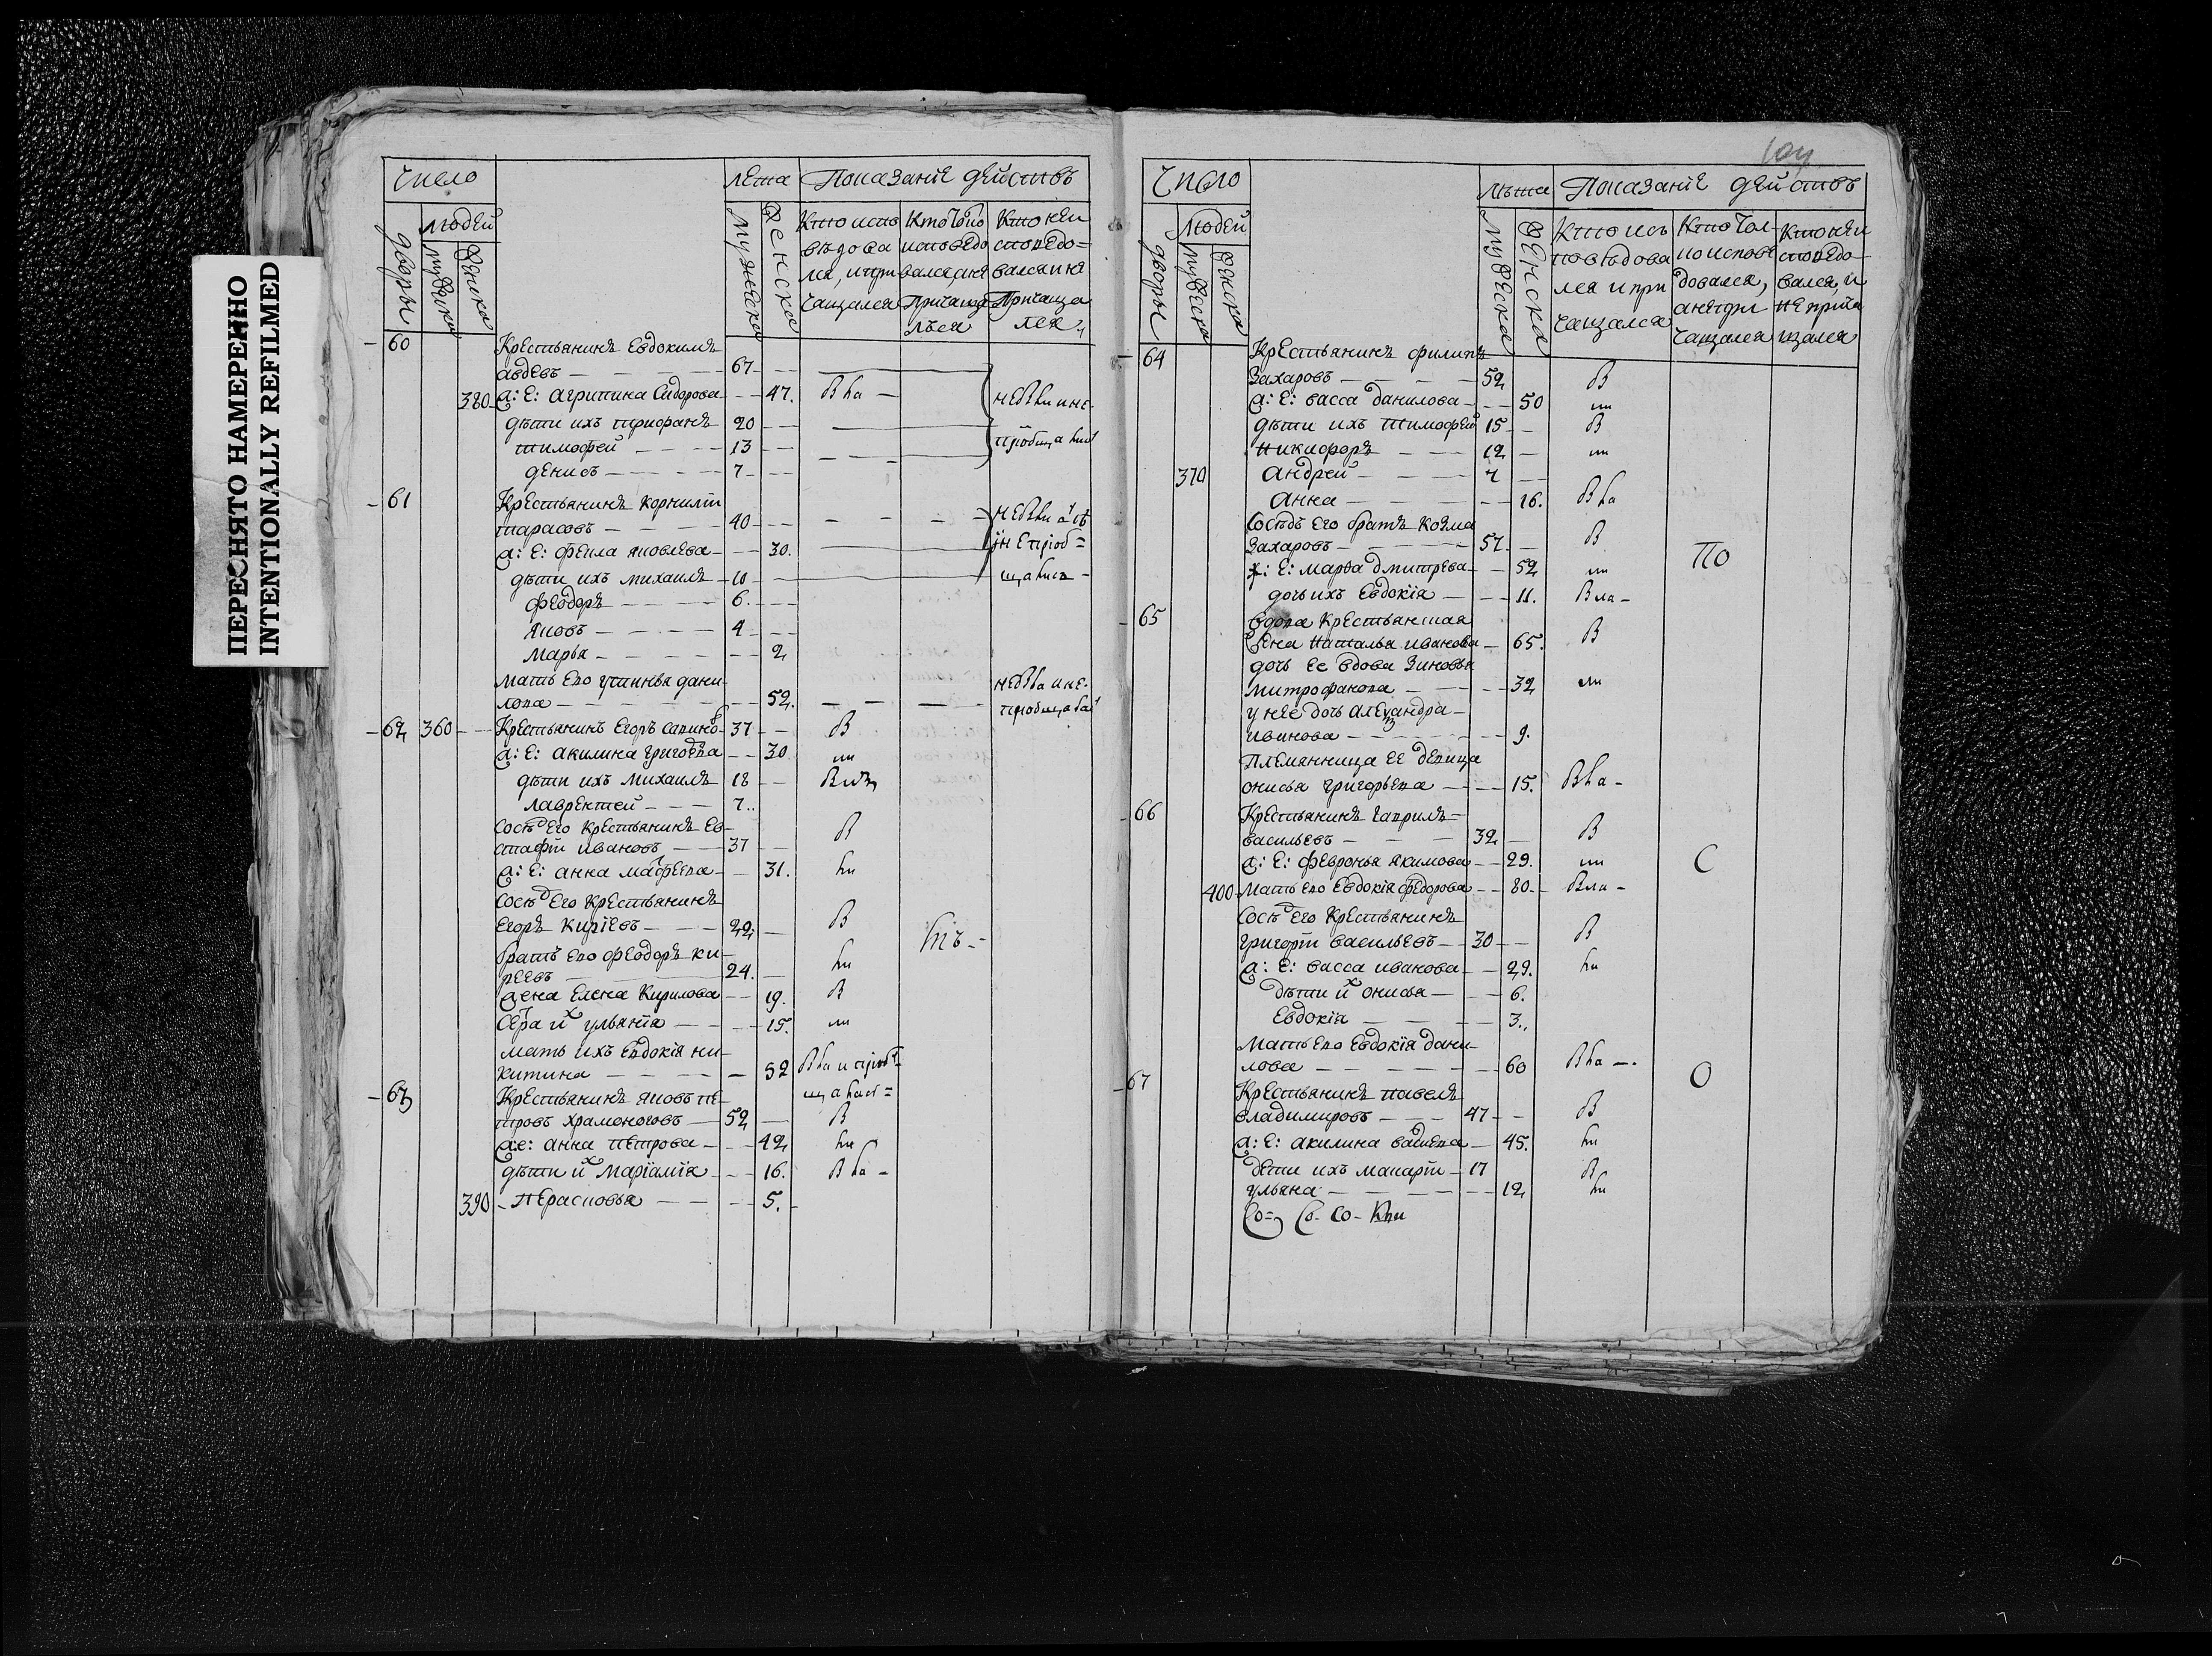 ПЕРЕСНЯТО НАМЕРЕННО
INTENTIONALLY REFILMED
Число
лета Показание действъ
дворы
людей
мужеска
женска
мужеска
женска
Кто испо
ведова
лся, и при
чащался
Кто токмо
исповедо
вался, а не
причаща
лься
Кто не и
споведо=
вался и не
причаща
лся
60 Крестьянинъ Евдокимъ
авдеевъ 67
380 ж: е: агрипина Сидорова 47.
дети ихъ трифанъ 20
тимофей 13
денисъ 7
61 Крестьянинъ корнилій
тарасовъ 40
ж: е: фекла яковлева 30.
дети ихъ михаилъ 10
феодоръ 6.
яковъ 4
марья 2
мать его устинья дани
лова 52.
62 360 Крестьянинъ Егоръ 37
ж: е: акилина григорьева 30
дети ихъ михаилъ 18
лаврентей 7.
сосед Его Крестьянинъ Ев
стафій ивановъ 37
ж: е: анна матфеева 31.
сосед Его Крестьянинъ
Егоръ Киріевъ 22
братъ его феодоръ ки
реевъ 24.
жена Елена Кирилова 19.
сестра их ульянія 15.
мать ихъ Евдокія ни
китина 52
63 Крестьянинъ яковъ пе
тровъ храмоноговъ 52
ж:е: анна петрова 42
дети их Маріамія 16.
390 Перасковья 5.
104
Число
лета Показание действъ
дворы
людей
мужеска
женска
мужеска
женска
Кто ис
поведова
лся и при
чащался
Кто тол
ко испове
довался,
а не при
чащался
Кто не и
споведо
вался, и
не прича
щался
64 Крестьянинъ филипъ
Захаровъ 52 В
ж: е: васса данилова 50
дети ихъ тимофей 15 В
никифоръ 12
370 андрей 4
анна 16.
соседъ его братъ козма
Захаровъ 57. В
ж: е: марфа дмитрева 52
По
дочь ихъ Евдокія 11.
65 вдова крестьянская
жена наталья иванова 65. В
дочь ее вдова Зиновья
митрофанова 32
у нее дочь александра
иванова 9.
Племянница ее девица
онисья григорьева 15.
66 Крестьянинъ гаврилъ
васильевъ 32 В
ж: е: февронья якимова 29.
С
400 Мать его Евдокія федорова 80
сосед Его Крестьянинъ
григорій васильевъ 30 В
ж: е: васса иванова 29.
дети их онисья 6.
Евдокія 3.
Мать его Евдокія дани
лова 60
О
67 Крестьянинъ павелъ
владимировъ 47 В
ж: е: акилина 45.
дети ихъ макарій 17 В
ульяна 12